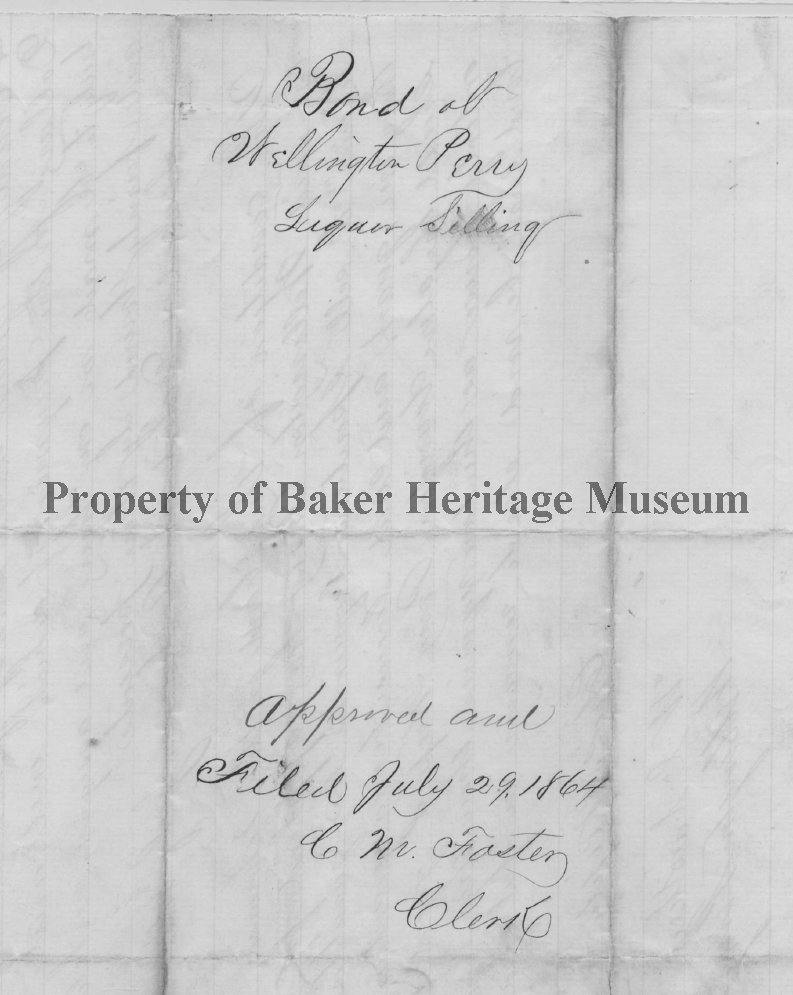 Bond of
Wellington Perry
Liquor Selling
Property of Baker Heritage Museum
Approved and
Filed July 29, 1864
C M. Foster
Clerk